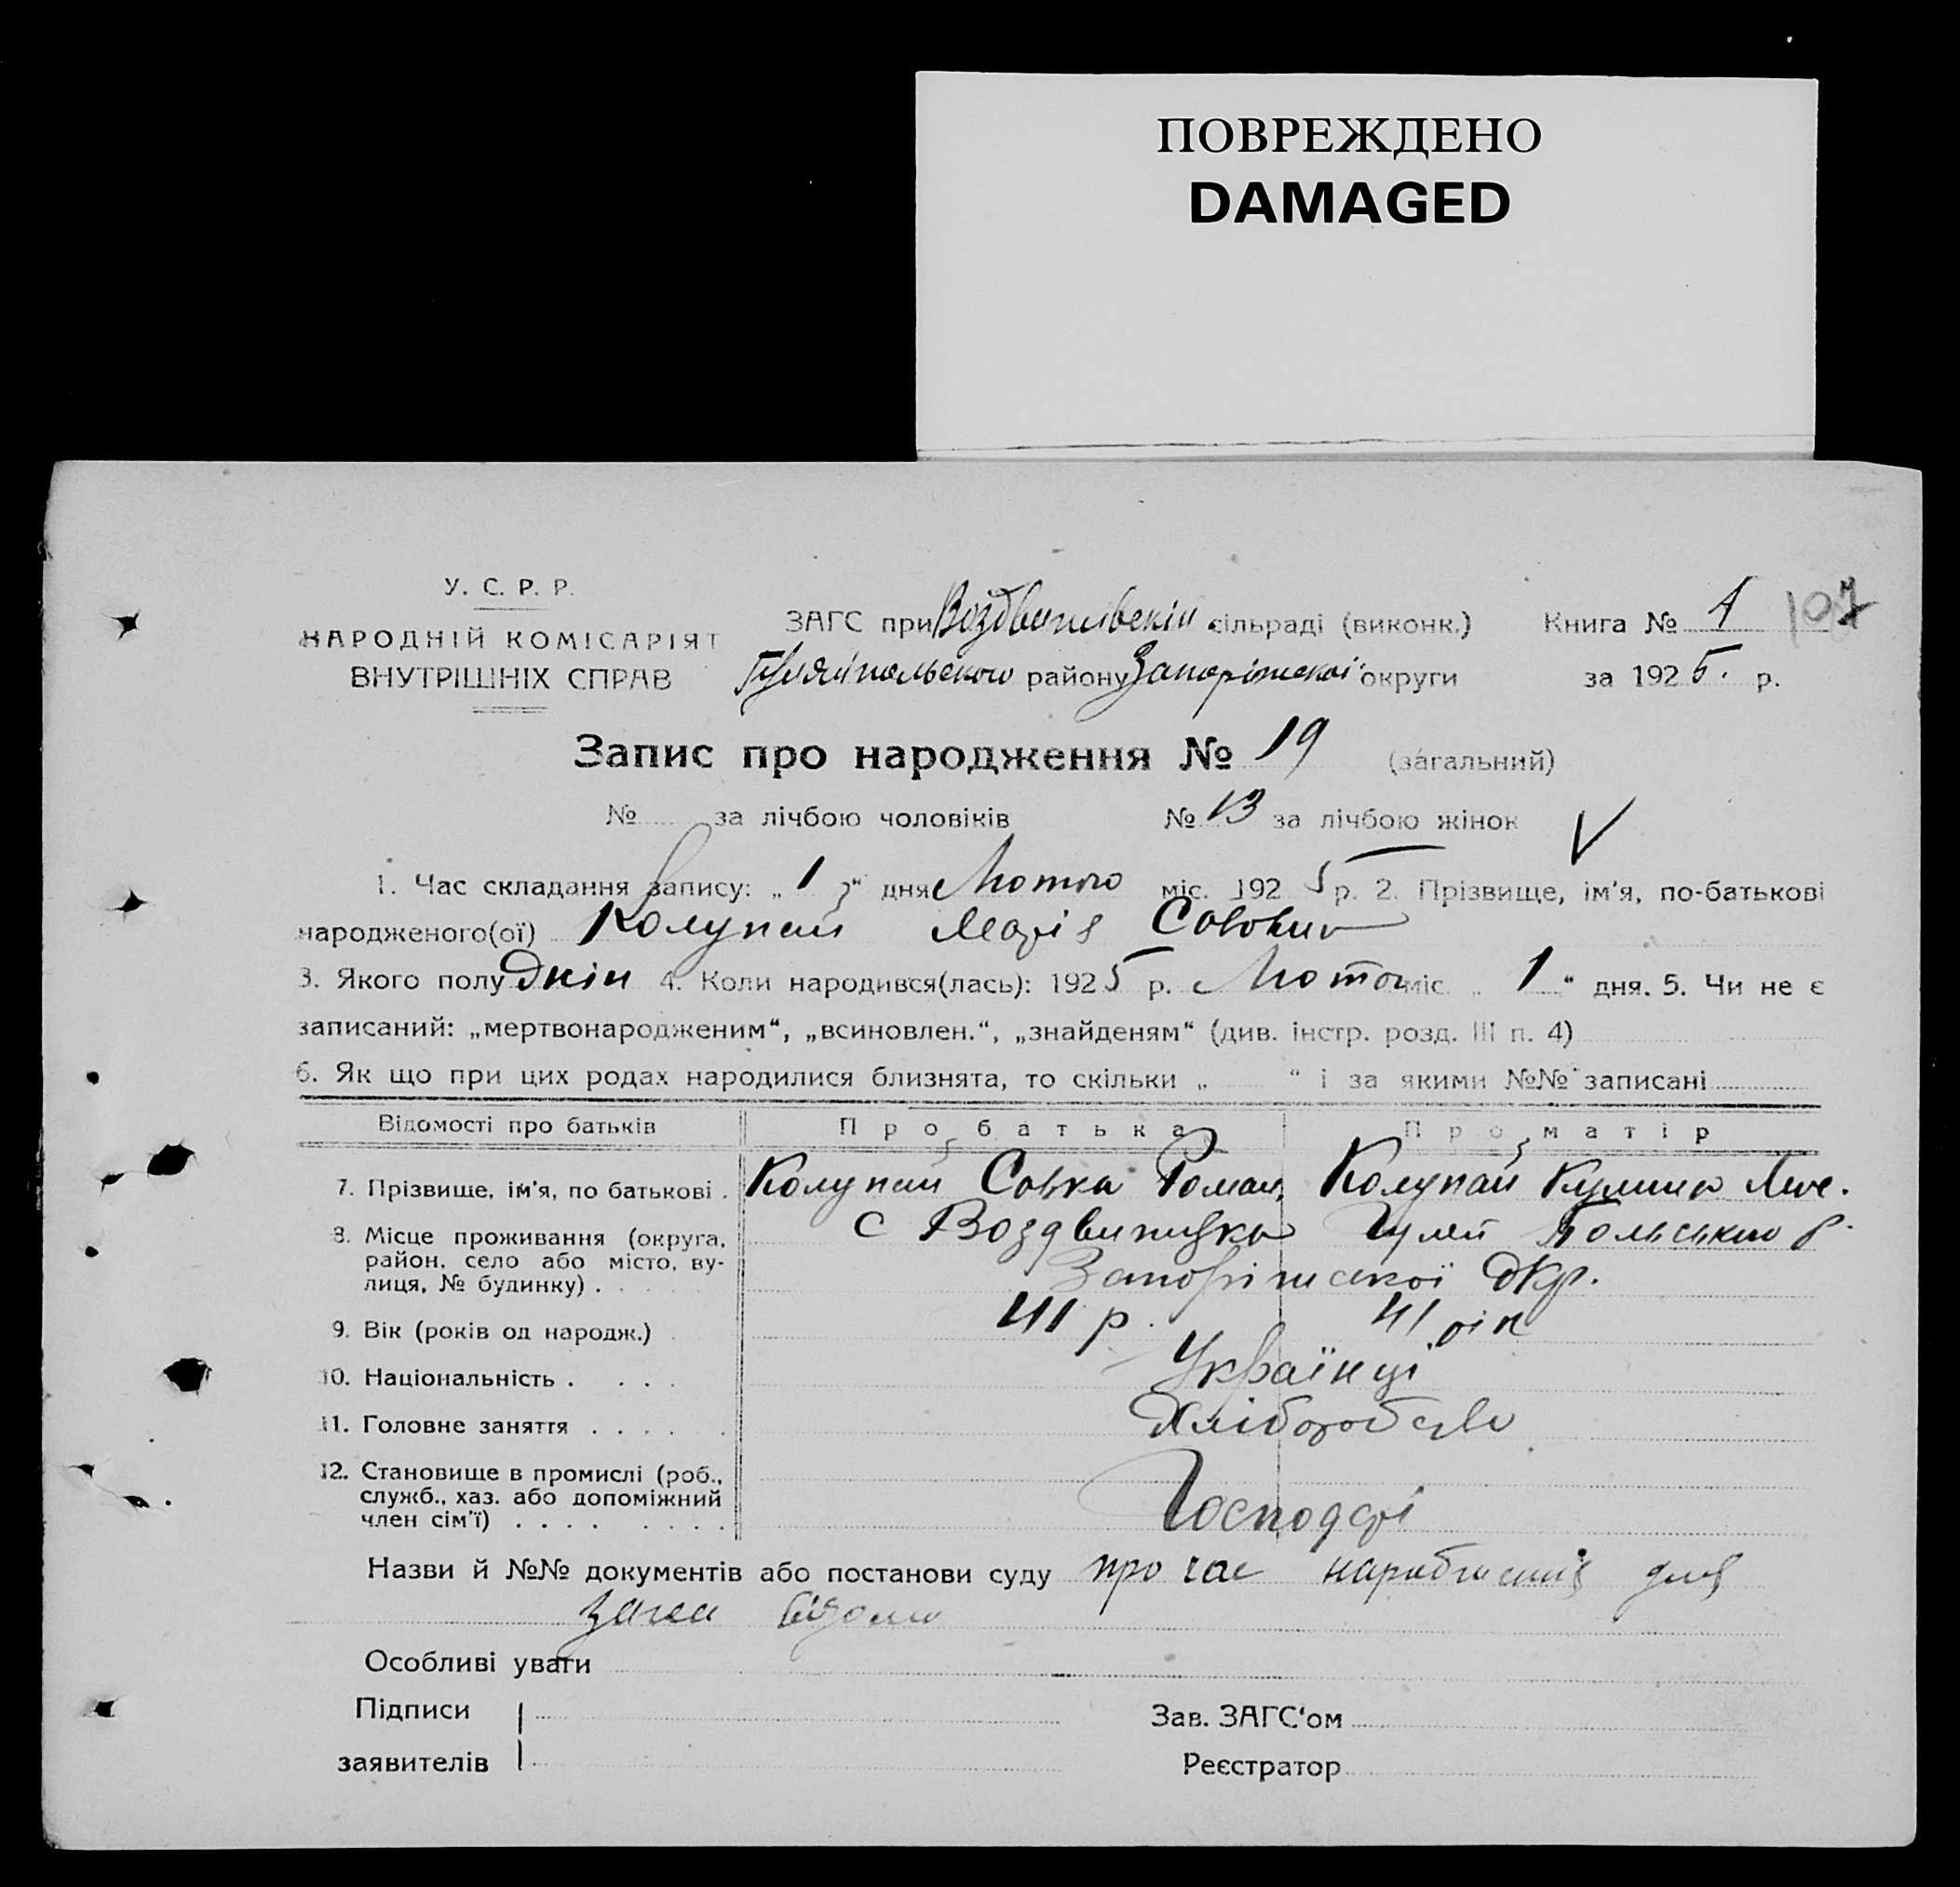 ПОВРЕЖДЕНО
DAMAGED
У. С. Р. Р.
НАРОДНІЙ КОМІСАРІЯТ
ВНУТРІШНІХ СПРАВ
ЗАГС при сільраді (виконк.)
Книга № 1 107
Гуляйпольського району Запоріжскої округи
за 1925. р.
Запис про народження № 19 (загальний)
№ за лічбою чоловіків № 13 за лічбою жінок V
1. Час складання запису: „1“ дня Лютого міс. 1925 р. 2. Прізвище, ім'я, по-батькові
народженого(ої) Колупай Марія
3. Якого полу 4. Коли народився(лась): 1925 р. Лютого міс. „1“ дня. 5. Чи не є
записаний: „мертвонародженим“, „всиновлен.“, „знайденям“ (див. інстр. розд. III п. 4)
6. Як що при цих родах народилися близнята, то скільки „ “ і за якими №№ записані
Відомості про батьків Про батька Про матір
7. Прізвище, ім'я, по батькові . Колупай Совка Роман. Колупай
8. Місце проживання (округа, район, село або місто, вулиця, № будинку) . с Гуляй Польського р.
Запоріжскої Окр.
9. Вік (років од народж.) 41 р. 41 рік
10. Національність . . . . Українці
11. Головне заняття . . . . . Хліборобство
12. Становище в промислі (роб., служб., хаз. або допоміжний член сім'ї) . . . . . . . . Господарі
Назви й №№ документів або постанови суду про час народження для
загса відомо
Особливі уваги
Підписи
Зав. ЗАГС'ом
заявителів
Реєстратор